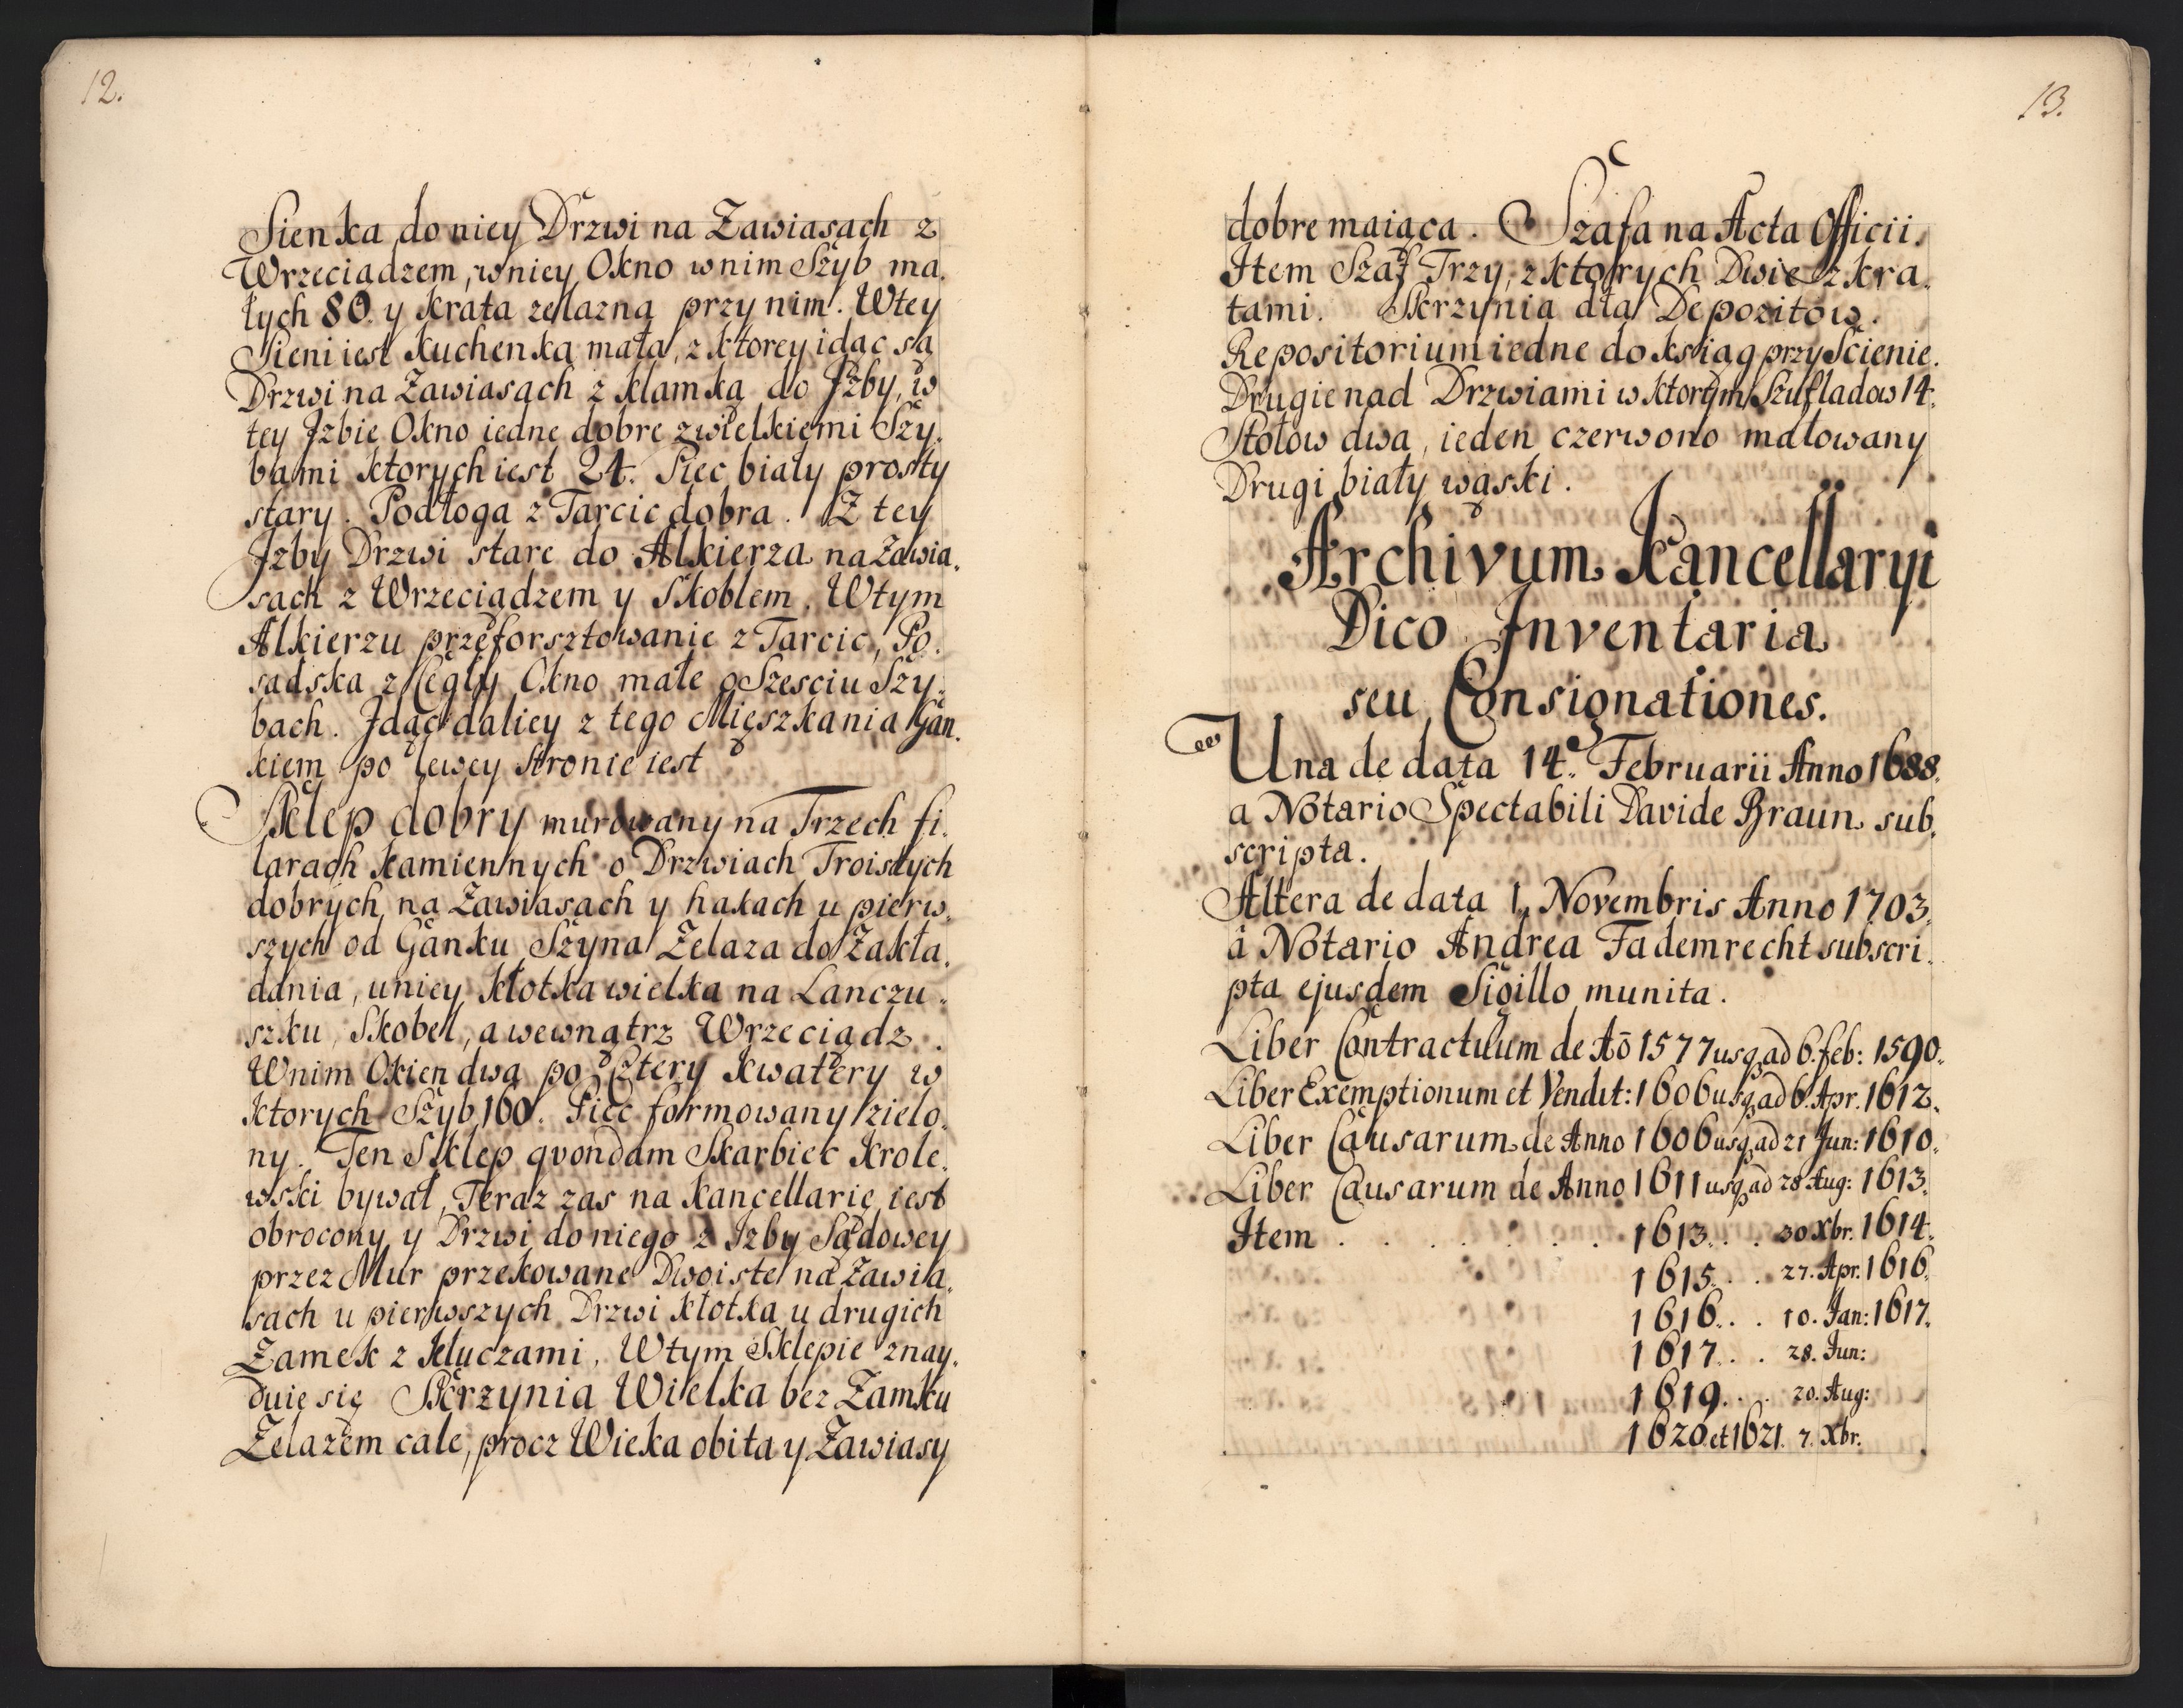 12.
Sienka do niey Drzwi na Zawiasach z
Wrzeciądzem, w niey Okno w nim Szyb ma-
łych 80. y krata żelazna przy nim. W tey
Sieni iest kuchenka mała, z ktorey idąc są
Drzwi na Zawiasach z klamką do Jzby, w
tey Jzbie Okno iedne dobre z wielkiemi Szy-
bami ktorych iest 24. Piec biały prosty
stary. Podłoga z Tarcic dobra. Z tey
Jzby Drzwi stare do Alkierza na Zawia-
sach z Wrzeciądzem y Skoblem. W tym
Alkierzu przeforsztowanie z Tarcic, Po-
sadska z Cegły Okno małe o Szesciu Szy-
bach. Jdąc daliey z tego Mięszkania Gan-
kiem po lewey stronie iest
Sklep dobry murowany na Trzech fi-
larach kamiennych o Drzwiach Troistych
dobrych na Zawiasach y hakach u pierw-
szych od Ganku Szyna Żelaza do Zakła-
dania, u niey kłotka wielka na Lanczu-
szku, Skobel, a wewnątrz Wrzeciądz.
W nim Okien dwa po Cztery kwatery w
ktorych Szyb 160. Piec formowany zielo-
ny. Ten Sklep qvondam Skarbiec Krole-
wski bywał, Teraz zas na kancellarię iest
obrocony y Drzwi do niego z Izby Sądowey
przez Mur przekowane Dwoiste na Zawia-
sach u pierwszych Drzwi kłotka u drugich
Zamek z kluczami. W tym Sklepie znay-
duie się Skrzynia Wielka bez Zamku
Żelazem cale, procz Wieka obita y Zawiasy
13.
dobre maiąca. Szafa na Acta Officii.
Item Szaf Trzy, z ktorych Dwie z kra-
tami. Skrzynia dla Depozitow.
Repositorium iedne do ksiąg przy Scienie.
Drugie nad Drzwiami w ktorym Szufladow 14.
Stołow dwa, ieden czerwono malowany
Drugi biały wąski.
Archivum Kancellaryi
Dico Inventaria
seu Consignationes.
Una de data 14. Februarii Anno 1688.
a Notario Spectabili Davide Braun sub-
scripta.
Altera de data 1. Novembris Anno 1703.
à Notario Andrea Fademrecht subscri-
pta ejusdem Sigillo munita.
Liber Contractuum de Aō 1577 usq ad 6. feb: 1590.
Liber Exemptionum et Vendit: 1606 usq ad 6. Apr. 1612.
Liber Causarum de Anno 1606 usq ad 21 Jun: 1610.
Liber Causarum de Anno 1611 usq ad 28 Aug: 1613.
Item . . . . . . . 1613. . . 30 Xbr. 1614.
1615. . . 27. Apr. 1616.
1616. . . 10. Jan: 1617.
1617. . . 28. Jun:
1619. . . 20. Aug:
1620 et 1621. 7. Xbr.